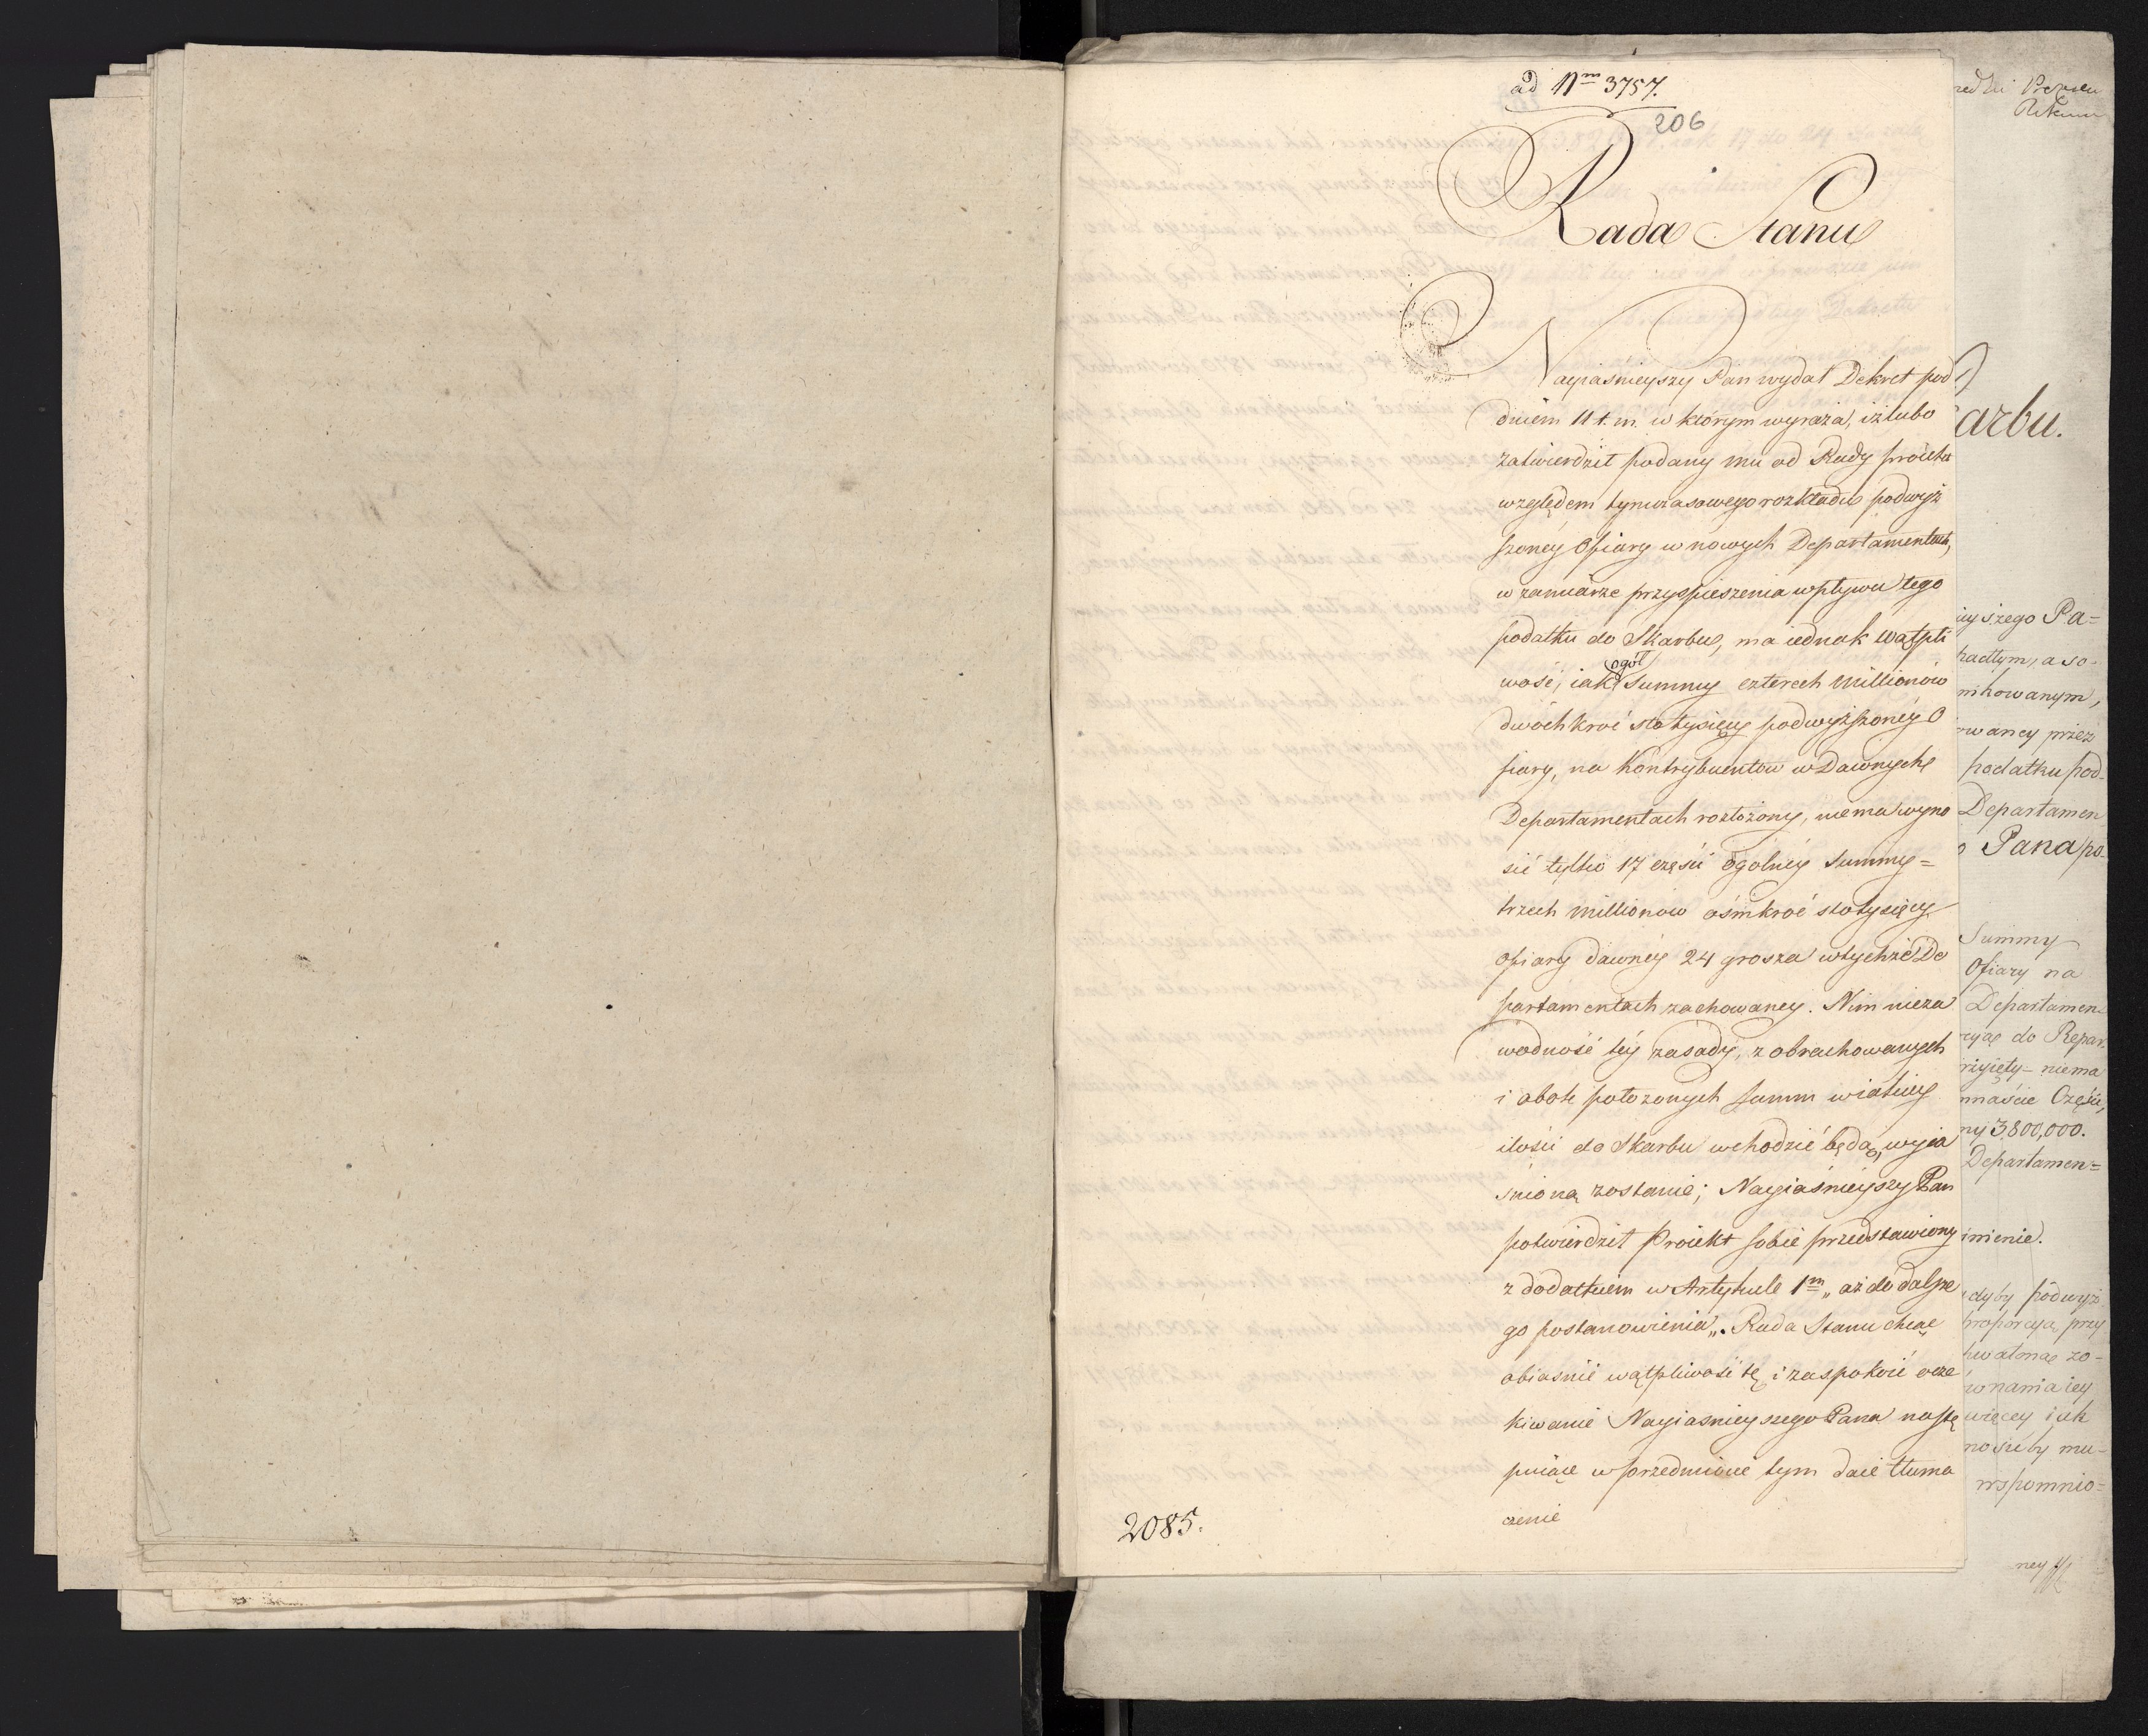 ad Nm 3757.
206
Rada Stanu
Nayiasnieyszy Pan wydał Dekret pod
dniem 11 t. m. w którym wyraża, iż lubo
zatwierdził podany mu od Rady proiekt
względem tymczasowego rozkładu podwyż
szoney Ofiary w nowych Departamentach,
w zamiarze przyspieszenia wpływu tego
podatku do Skarbu, ma iednak wątpli
ogół
wość, iak Summy czterech millionów
dwóchkroć stotysięcy podwyższoney O
fiary, na Kontrybuentów w Dawnych
Departamentach rozłożony, niema wyno
sić tylko 17 części ogolney Summy=
trzech millionów ośmkroć stotysięcy
ofiary dawney 24 grosza w tychże De
partamentach zachowaney. Nim nieza
wodność tey zasady, z obrachowanych
i obok położonych summ w iakiey
ilości do Skarbu wchodzić będą, wyia
śnioną zostanie; Nayiaśnieyszy Pan
potwierdził Proiekt sobie przedstawiony
z dodatkiem w Artykule 1m „aż do dalsze
go postanowienia„. Rada Stanu chcąc
obiaśnić wątpliwość tę i zaspokoić ocze
kiwanie Nayiasnieyszego Pana nastę
puiące w przedmiocie tym daie tłuma
czenie
2085.
arbu.
uyszego Pa=
padłym, a so-
nikowanym,
waney przez
podatku pod-
Departamen
Pana po-
Summy
Ofiary na
Departamen=
cyą do Repar.
rzyięty= niema
nnaście Części,
ny 3,800,000.
Departamen=
imienie.
dyby podwyż
proporcyą przy
hwaloną zo-
wnania iey
więcey iak
nosiłby mu-
wspomnio=
ney